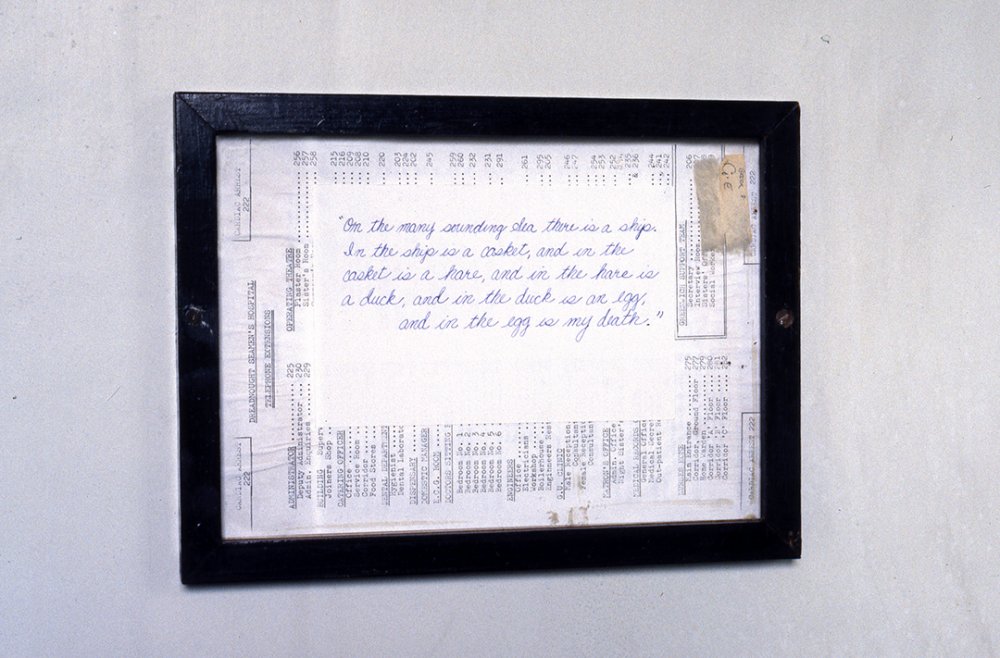 "On the many sounding sea there is a ship.
In the ship is a casket, and in the
casket is a hare, and in the hare is
a duck, and in the duck is an egg,
and in the egg is my death."
DREADNOUGHT SEAMEN'S HOSPITAL
TELEPHONE EXTENSIONS
CARDIAC ARREST
222
CARDIAC ARREST
222
ADMINISTRATOR 225
Deputy Administrator ... 230
Admin. Enquiries 229
BUILDING
Joiners Shop
CATERING OFFICER
Office
Service Room
Corridor
Food Stores
DENTAL DEPARTMENT
Hygienist
Dental Laborato
DISPENSARY
DOMESTIC MANAGER
E.C.G. ROOM
DOCTORS SITTING
Bedroom No. 1
Bedroom No. 2
Bedroom No. 3
Bedroom No. 4
Bedroom No. 5
Bedroom No. 6
ENGINEERS
Office
Electricians
Workshop
Boilerhouse
Engineers Rest
Male Reception
Consultant
Female Recepti
Consultant
Main Office
Night Sister'
MEDICAL RECORDS
General Office
Medical Secret
Out-patient
215
216
209
208
210
220
203
224
202
245
259
260
232
231
291
261
295
205
246
247
254
253
252
235
& 236
244
241
242
OPERATING THEATRE
Plaster Room 256
257
Sister's Room 258
NURSES HOME
Main Entrance 275
Ground Floor 277
Home Warden 279
Corridor 'A' Floor 280
Corridor 'B' Floor 281
Corridor 'C' Floor 282
GREENWICH SUPPORT TEAM
Secretary 206
Interview Room
Sisters' Office
Social Worker
CARDIAC ARREST 222
CARDIAC ARREST 222